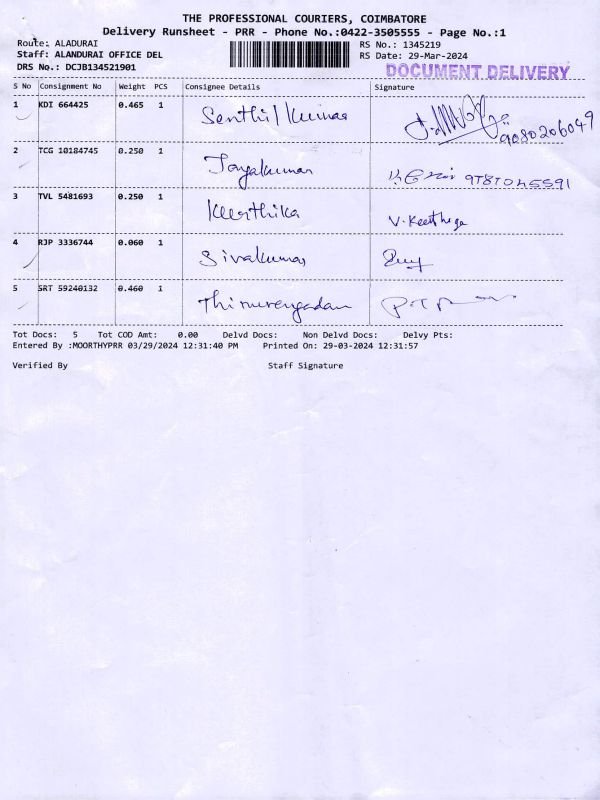 THE PROFESSIONAL COURIERS, COIMBATORE
Delivery Runsheet - PRR - Phone No.:0422-3505555 - Page No.:1
Route: ALADURAI
RS No.: 1345219
Staff: ALANDURAI OFFICE DEL
RS Date: 29-Mar-2024
DRS No.: DCJB134521901
DOCUMENT DELIVERY
S No Consignment No Weight PCS Consignee Details Signature
1 KDI 664425 0.465 1 Senthil Kumar 9080206049
2 TCG 10184745 0.250 1 Jayakumar 9787045591
3 TVL 5481693 0.250 1 Keerthika V. Keerthiga
4 RJP 3336744 0.060 1 Sivakumar
5 SRT 59240132 0.460 1 Thiruvengadam
Tot Docs: 5 Tot COD Amt: 0.00 Delvd Docs: Non Delvd Docs: Delvy Pts:
Entered By :MOORTHYPRR 03/29/2024 12:31:40 PM Printed On: 29-03-2024 12:31:57
Verified By Staff Signature